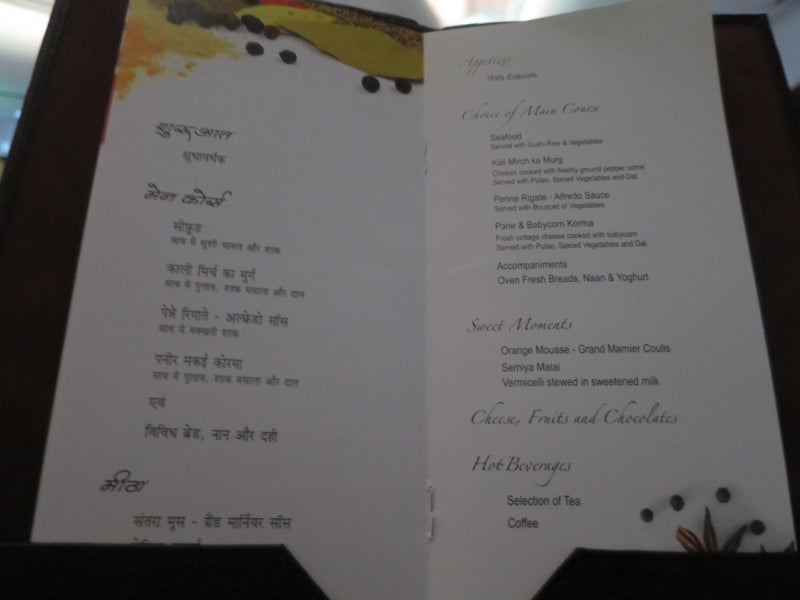 शुरूआत
क्षुधावर्धक
मेन कोर्स
सीफ़ूड
साथ में सुशी चावल और शाक
काली मिर्च का मुर्ग
साथ में पुलाव, शाक मसाला और दाल
पेन्ने रिगाते - अल्फ्रेडो सॉस
साथ में मक्खनी शाक
पनीर मकई कोरमा
साथ में पुलाव, शाक मसाला और दाल
एवं
विविध ब्रेड, नान और दही
मीठा
संतरा मूस - ग्रैंड मार्नियर सॉस
Appetizer
Hors d'oeuvre
Choice of Main Course
Seafood
Served with Sushi Rice & Vegetables
Kali Mirch ka Murg
Chicken cooked with freshly ground pepper corns
Served with Pulao, Spiced Vegetables and Dal
Penne Rigate - Alfredo Sauce
Served with Bouquet of Vegetables
Panir & Babycorn Korma
Fresh cottage cheese cooked with babycorn
Served with Pulao, Spiced Vegetables and Dal
Accompaniments
Oven Fresh Breads, Naan & Yoghurt
Sweet Moments
Orange Mousse - Grand Marnier Coulis
Semiya Malai
Vermicelli stewed in sweetened milk
Cheese, Fruits and Chocolates
Hot Beverages
Selection of Tea
Coffee